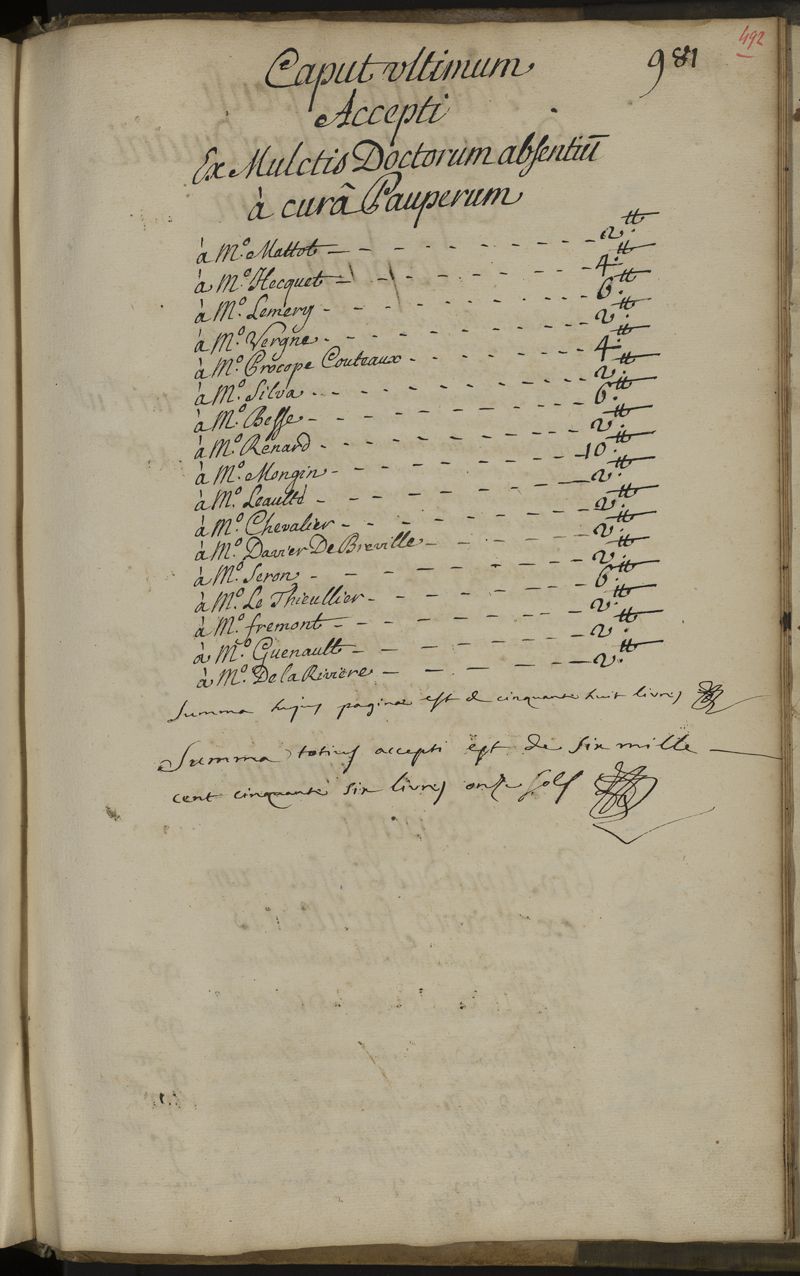 492
981
Caput vltimum
Accepti
Ex Mulctis Doctorum absentiū
à curâ Pauperum
à M.º Mattot - - - - - - - 2.ᵗᵗ
à M.º Hecquet - - - - - - - 4.ᵗᵗ
à M.º Lemery - - - - - - - 6.ᵗᵗ
à M.º Vergne - - - - - - - 2.ᵗᵗ
à M.º Procope Couteaux - - - - - 4.ᵗᵗ
à M.º Silva - - - - - - - 2.ᵗᵗ
à M.º Besse - - - - - - - 6.ᵗᵗ
à M.º Renard - - - - - - - 2.ᵗᵗ
à M.º Mongin - - - - - - - 10.ᵗᵗ
à M.º Leaulté - - - - - - - 2.ᵗᵗ
à M.º Chevalier - - - - - - 2.ᵗᵗ
à M.º Davier De Breville - - - - 2.ᵗᵗ
à M.º Seron - - - - - - - 2.ᵗᵗ
à M.º Le Thieullier - - - - - - 6.ᵗᵗ
à M.º fremont - - - - - - - 2.ᵗᵗ
à M.º Guenault - - - - - - 2.ᵗᵗ
à M.º De la Riviere - - - - - 2.ᵗᵗ
Summa hujus paginae est de cinquante huit livres
Summa totius accepti est de six mille
cent cinquante six livres onze sols